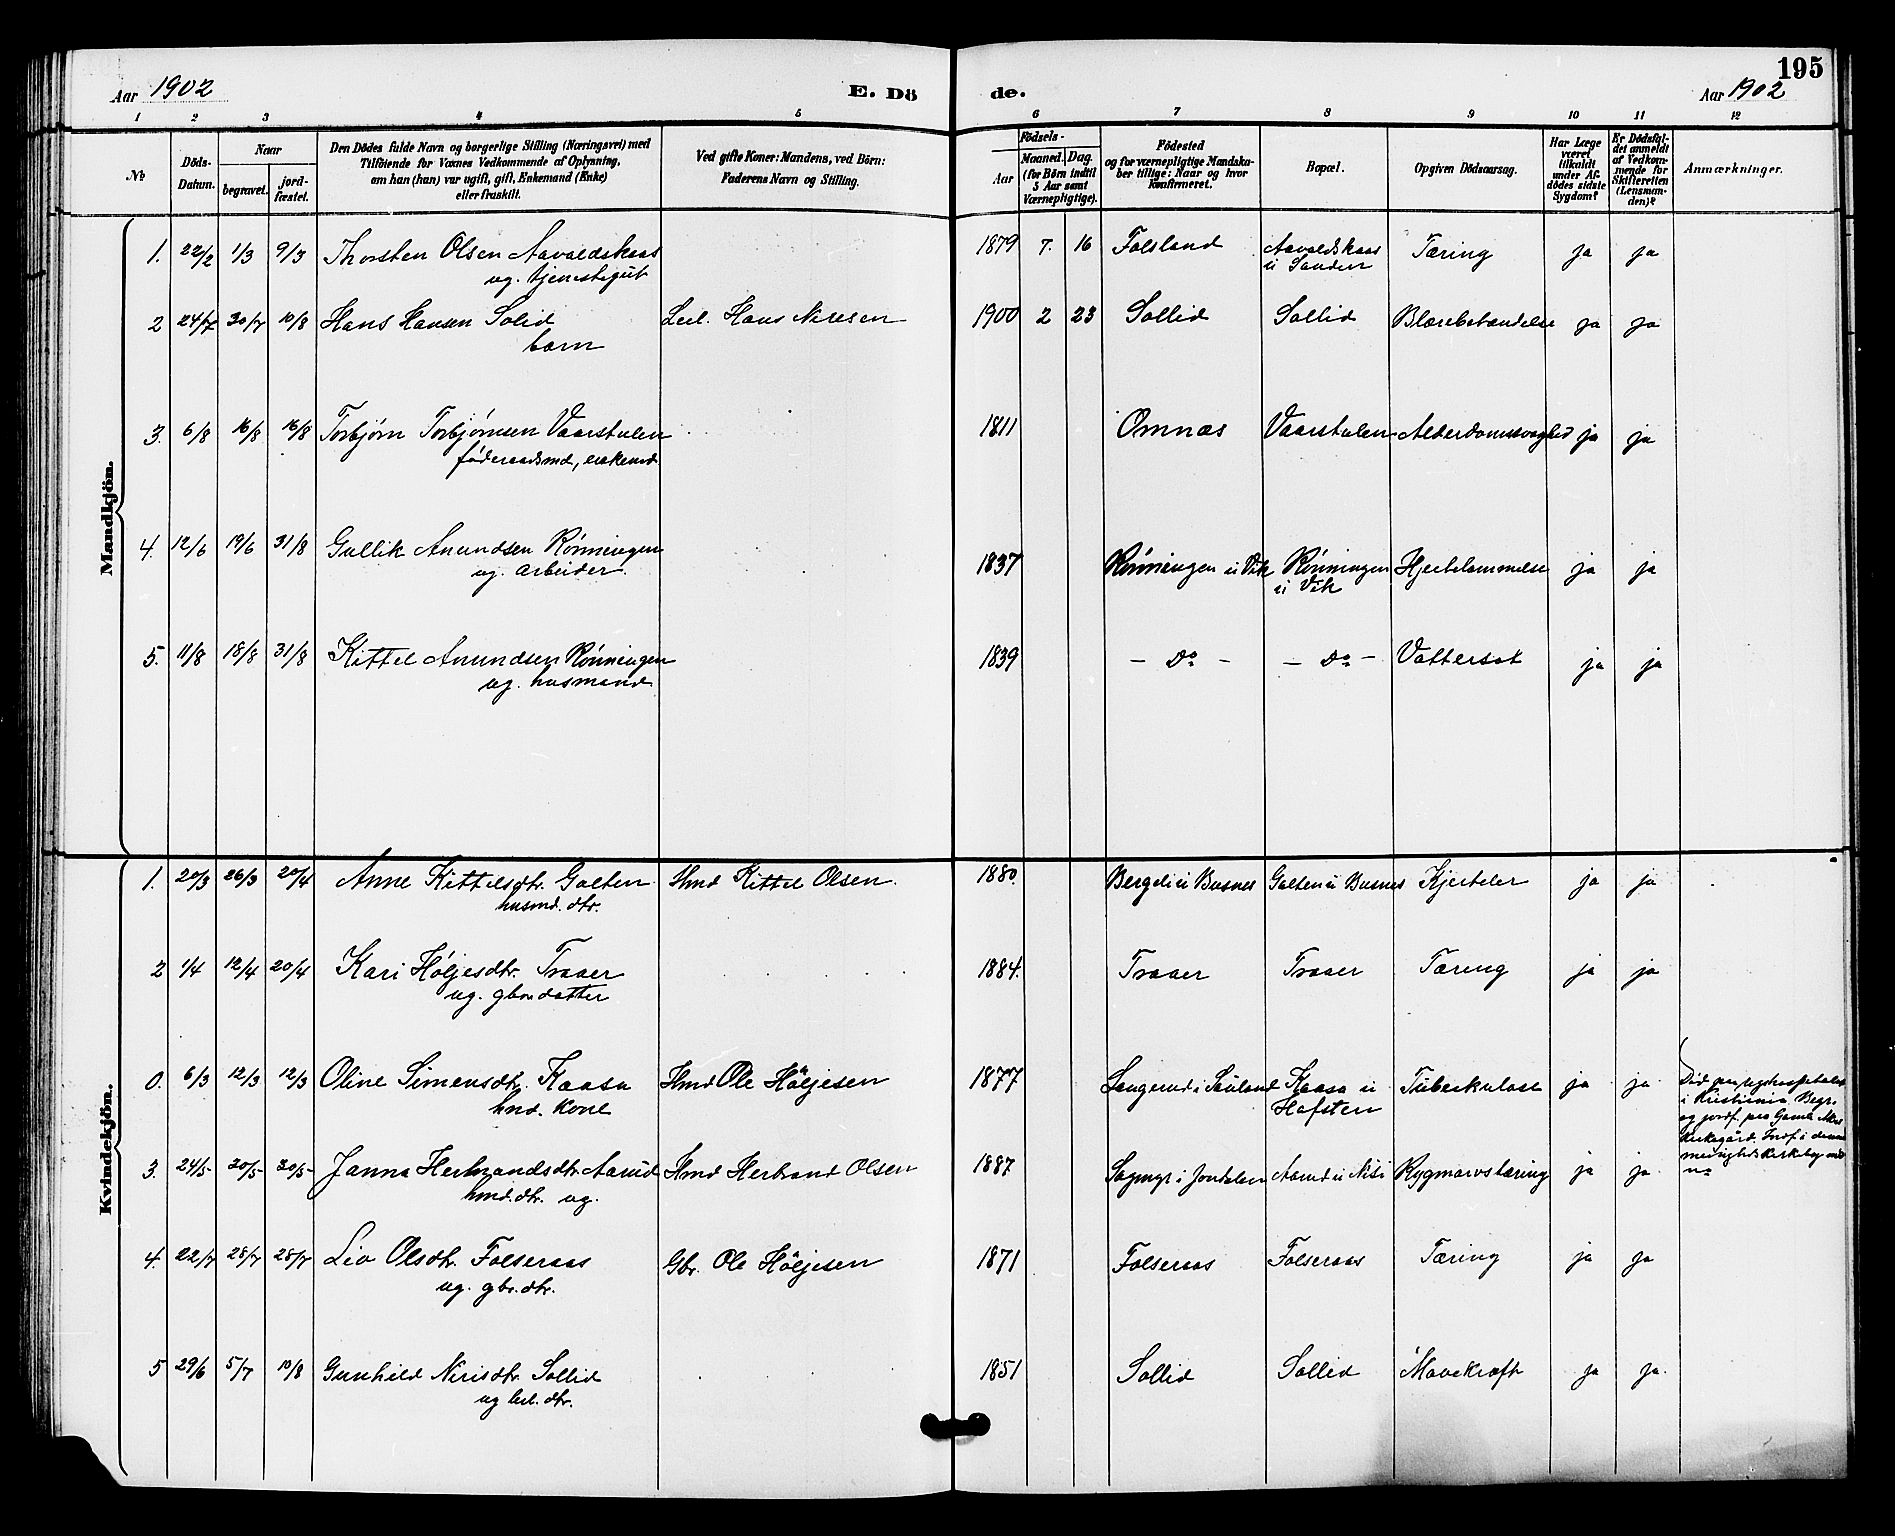 195
Aar 1902 E. Dö de. Aar 1902
1 2 3 4 5 6 7 8 9 10 11 12
№
Döds-
Datum.
Naar
begravet. jord-
fæstet.
Den Dödes fulde Navn og borgerlige Stilling (Næringsvei) med
Tilföiende for Voxnes Vedkommende af Oplysning,
om han (hun) var ugift, gift, Enkemand (Enke)
eller fraskilt.
Ved gifte Koner: Mandens, ved Börn:
Faderens Navn og Stilling.
Födsels-
Aar Maaned. Dag.
(for Börn indtil
5 Aar samt
Værnepligtige).
Födested
og for værnepligtige Mandska-
ber tillige: Naar og hvor
konfirmeret.
Bopæl.
Opgiven Dödsaarsag.
Har Læge
været
tilkaldt
under Af-
dödes sidste
Sygdom?
Er Dödsfal-
det anmeldt
af Vedkom-
mende for
Skifteretten
(Lensman-
den)?
Anmærkninger.
Mandkjön.
1. 22/2 1/3 9/3 Thorsten Olsen Aavaldskaas 1879 7. 16 Folsland Aavaldskaas Tæring ja ja
ug. tjenestegut u Sanden
2 24/7 30/7 10/8 Hans Hansen Solid Leil. Hans Nirisen 1900 2 23 Sollid Sollid Blærebetændelse ja ja
barn
3. 6/8 16/8 16/8 Torbjørn Torbjørnsen Vaarstulen 1811 Omnæs Vaarstulen Alderdomssvaghed ja ja
føderaadsmd, enkemd
4. 12/6 19/6 31/8 Gullik Amundsen Rønningen 1837 Rønningen u Vik Rønningen Hjertelammelse ja ja
ug. arbeider. u Vik
5. 11/8 18/8 31/8 Kittel Amundsen Rønningen 1839 - Do - - Do - Vattersot ja ja
ug. husmand
Kvindekjön.
1. 20/3 26/3 20/4 Anne Kittelsdtr. Golten Hmd Kittel Olsen. 1880. Bergeli u Busnes Golten u Busnes Kjerteler ja ja
husmd. dtr.
2 1/4 12/4 20/4 Kari Höljesdtr. Traaer 1884. Traaer Traaer Tæring ja ja
ug. gbr. datter
0. 6/3 12/3 12/3 Oline Simensdtr. Kaasa Hmd Ole Höljesen 1877 Langerud i Sauland Kaasa u Tuberkulose ja ja.
hmd. kone Hafsten
Død paa rigshospitalet
i Kristiania. Begr.
og jordf. paa Gamle Akers
kirkegård. Indf. i denne
menigheds kirkebog
3. 24/5 30/5 30/5 Janna Herbrandsdtr. Aarud Hmd Herbrand Olsen 1887 Sagmyr i Jondalen Aarud u Nisi Rygmarvstæring ja ja.
hmd. dtr. ug.
4. 22/7 28/7 28/7 Liv Olsdtr. Folseraas Gbr. Ole Höljesen 1871 Folseraas Folseraas Tæring ja ja
ug. gbr. dtr.
5 29/6 5/7 10/8 Gunhild Nirisdtr. Sollid 1851 Sollid Sollid Mavekræft ja ja.
ug leil. dtr.